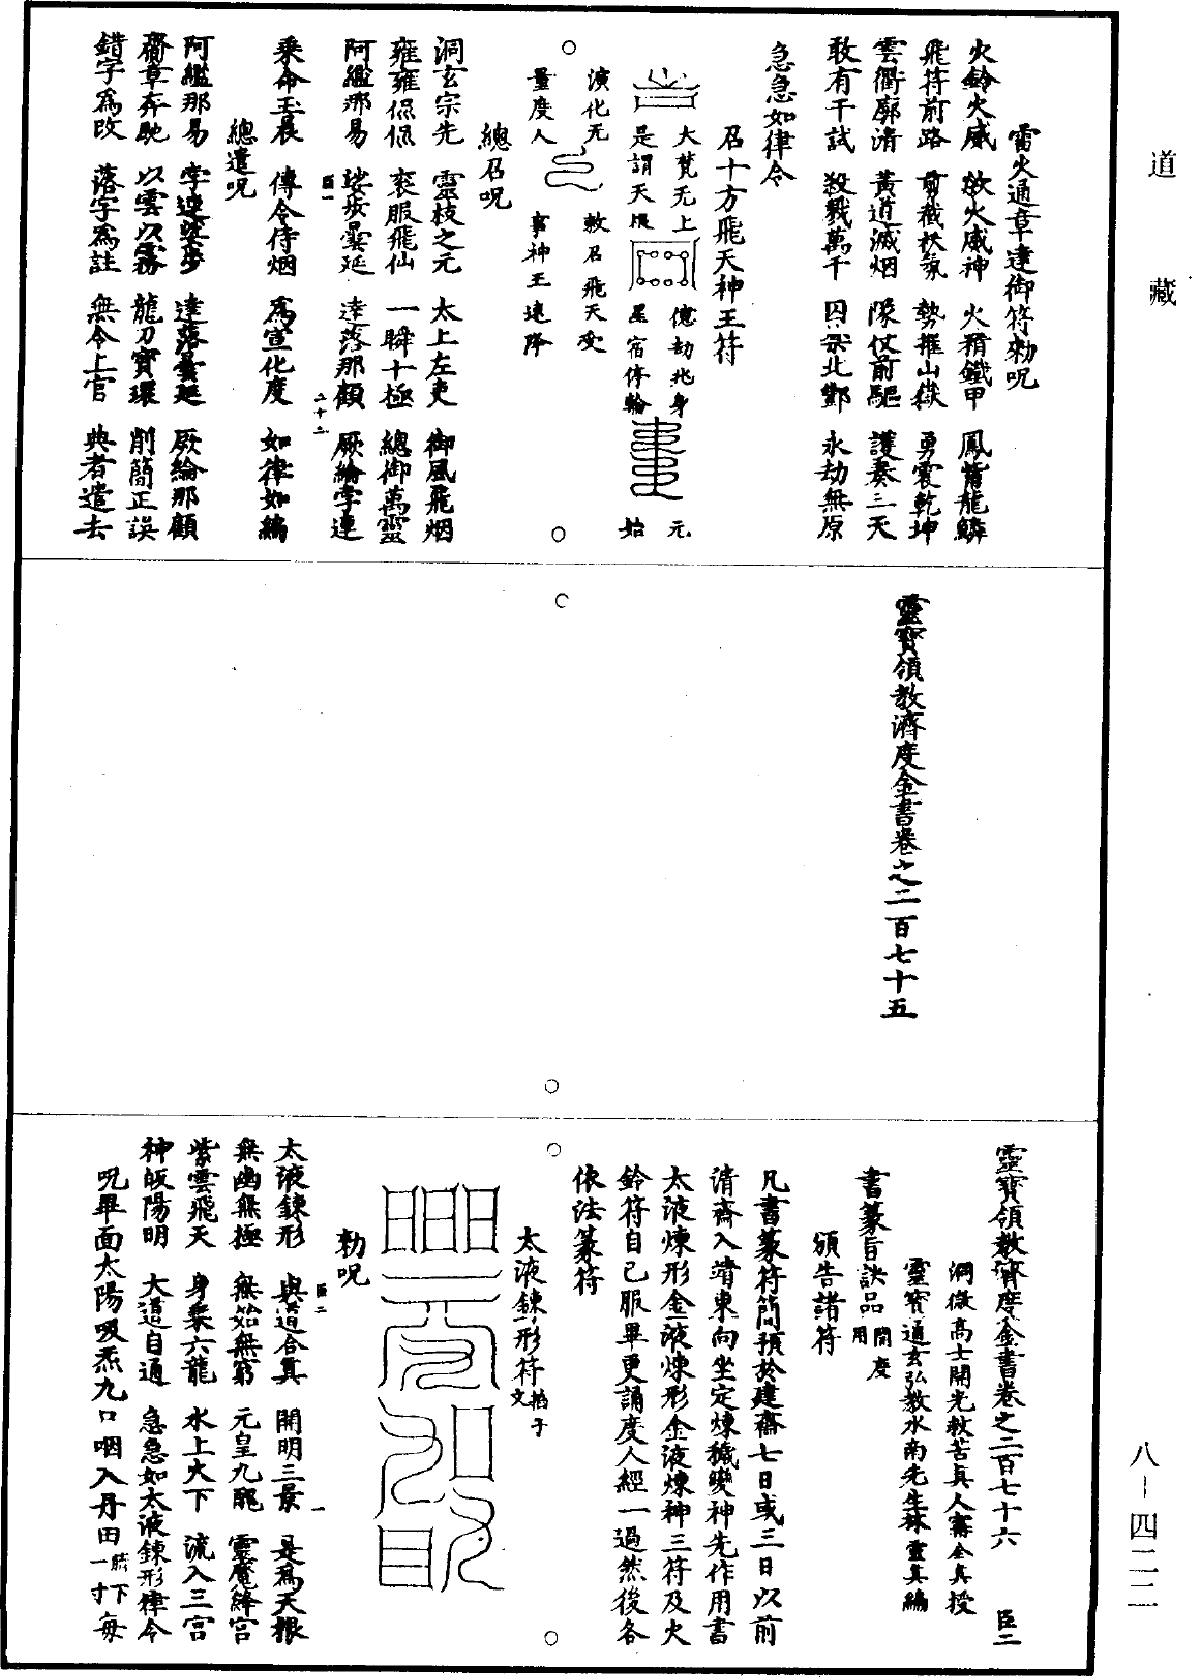 道藏
雷火通章達御符勑呪
火鈴火威　欻火威神　火猪鐵甲　鳳觜龍鱗
飛符前路　剪截袄氛　勢摧山嶽　勇震乾坤
雲衢廓清　黃道滅烟　隊仗前驅　護奏三天
敢有干試　殺戮萬千　囚祟北酆　永劫無原
急急如律令
召十方飛天神王符
大梵无上　億劫兆身　元
是謂天根　星宿停輪　始
演化无　敕召飛天受
量度人　事神王速降
總召呪
洞玄宗先　靈枝之元　太上左吏　御風飛烟
雍雍侃侃　衮服飛仙　一瞬十極　總御萬靈
阿㜮那易　娑歩曇延　達落那顧　厥繪孛連
臣一　二十二
乘命玉晨　傳令侍烟　爲宣化度　如律如編
總遣呪
阿㜮那易　孛連娑歩　達落曇延　厥繪那顧
齎章奔馳　以雲以霧　龍刀寶環　削簡正誤
錯字爲改　落字爲註　無令上官　典者遣去
靈寶領教濟度金書卷之二百七十五
靈寶領教濟度金書卷之二百七十六　臣二
洞微高士開光救苦真人甯全真授
靈寶通玄弘教水南先生林靈真編
書篆旨訣品開度用
頒告諸符
凡書篆符簡預於建齋七日或三日以前
清齋入靖東向坐定煉穢變神先作用書
太液煉形金液煉形金液煉神三符及火
鈴符自己服畢更誦度人經一過然後各
依法篆符
太液鍊形符文
勑呪
太液鍊形　與道合真　開明三景　是爲天根
無幽無極　無始無窮　元皇九聰　靈魔絳宮
臣二　一
紫雲飛天　身乘六龍　水上火下　流入三宮
神皈陽明　大道自通　急急如太液鍊形律令
呪畢面太陽吸炁九口咽入丹田臍下一寸每
八—四二二